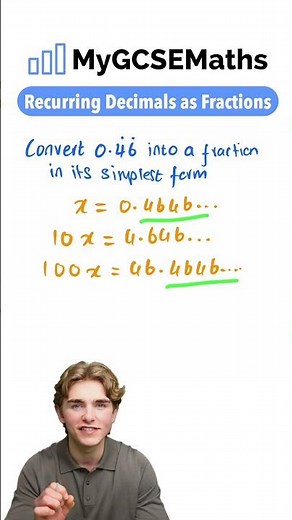 MyGCSEMaths
Recurring Decimals as Fractions
Convert 0.4̇6̇ into a fraction
in its simplest form
x = 0.4646...
10x = 4.646...
100x = 46.4646...